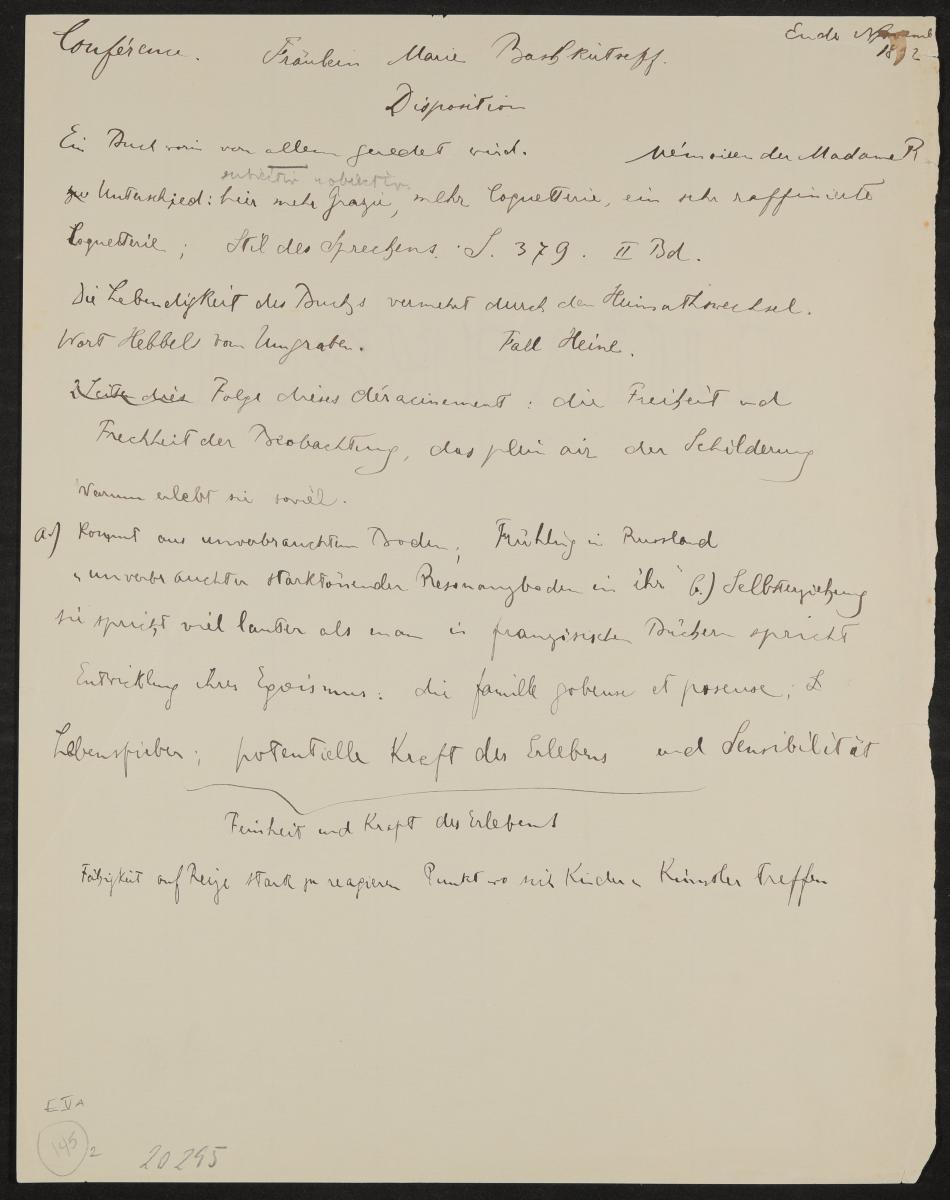 Conférence. Fräulein Marie Bashkirtseff. Ende Novemb
1892
Disposition
Ein Buch worin von allem geredet wird. Mémoiren der Madame R
subjectiv objectiv
Unterschied: hier mehr Grazie, mehr Coquetterie, ein sehr raffinierte
Coquetterie; Stil des Sprechens. S. 379. II Bd.
Die Lebendigkeit des Buchs vermehrt durch den Heimathswechsel.
Wort Hebbels vom Umgraben. Fall Heine.
Folge dieses déracinement: die Freiheit und
Frechheit der Beobachtung, das plein air der Schilderung
Warum erlebt sie soviel.
a.) Kommt aus unverbrauchtem Boden; Frühling in Russland
"unverbrauchter starktönender Resonanzboden in ihr" b.) Selbsterziehung
sie spricht viel lauter als man in französischen Büchern spricht
Entwicklung ihres Egoismus: die famille gobeuse et poseuse; L
Lebensfieber; potentielle Kraft des Erlebens und Sensibilität
Feinheit und Kraft des Erlebens
Fähigkeit auf Reize stark zu reagieren Punkt wo sich Kinder u Künstler treffen
E V A
145
2
20295